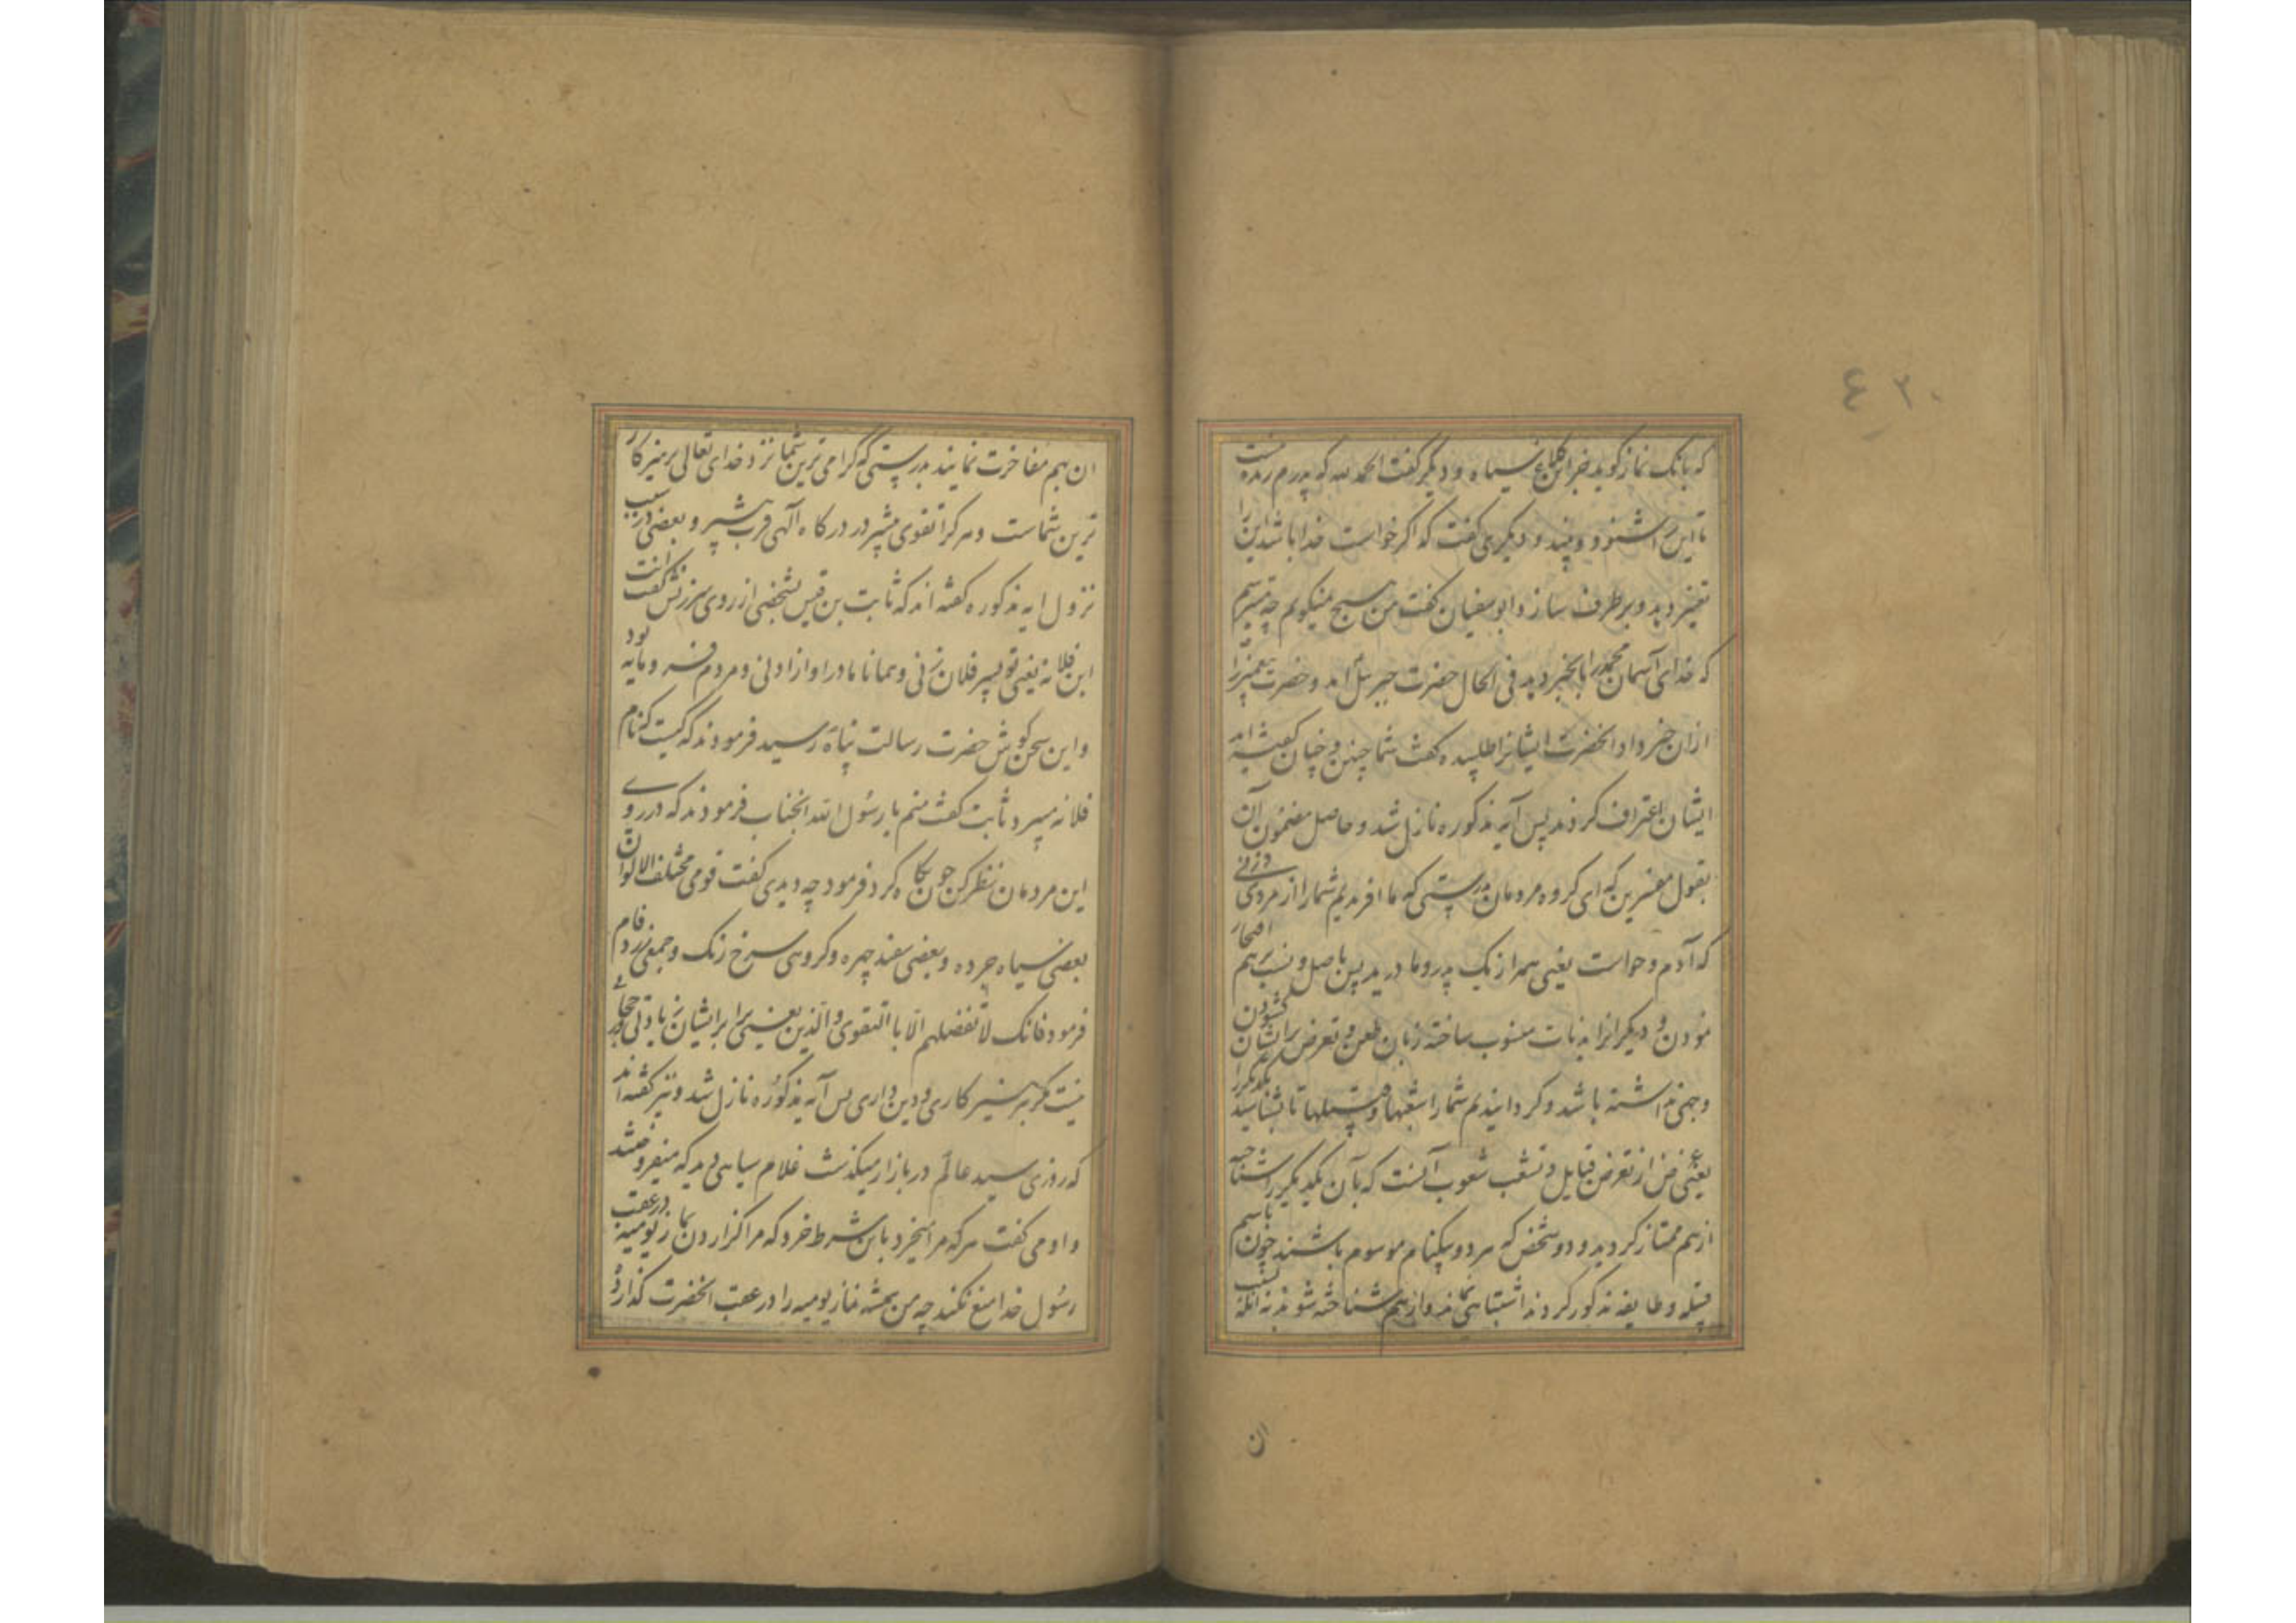 ۴۲۰
که بانک نماز کوید خبر این کلاغ سیاه و دیگر گفت الحمد لله که پدرم زنده نیست
تا این را شنود و بیند و دیکری گفت که اگر خواست خدا باشد این را
تغییر دهد و برطرف سازد و ابو سفیان گفت من هیچ نمیکویم چه میترسم
که خدای آسمان محمد را باخبر دهد فی الحال حضرت جبرئیل آمد و حضرت پیغمبر را
ازان خبر داد انحضرت ایشانرا طلبیده گفت شما چنین و چنان گفته اید
ایشان اعتراف کردند پس آیه مذکوره نازل شد و حاصل مضمون آن
بقول مفسرین که ای کروه مردمان بدرستی که ما افریدیم شما را از مردی و زنی
که آدم و حواست یعنی همه از یک پدر و مادرید پس باصل و نسب برهم افتخار
نمودن و دیکرانرا به منسوب ساخته زبان طعن و تعرض برایشان کشودن
وجهی نداشته باشد و کردانیدیم شما را شعبها و قبیلها تا بشناسید یکدیکر را
یعنی غرض از تعرض قبایل و تشعب شعوب آنست که بآن یکدیکر را شناخته
ازهم ممتاز کردید و دو شخص که هر دو بیکنام موسوم باشند چون باسم
قبیله و طایفه مذکور کردند اشتباهی نماند و ازهم شناخته شوند نه انکه بنسب
ان
ان بهم مفاخرت نمایند بدرستی که گرامی ترین شما نزد خدای تعالی پرهیزکار
ترین شماست و هر کرا تقوی بیشتر در درکاه آلهی قرب بیشتر و بعضی در سبب
نزول ایه مذکوره گفته اند که ثابت بن قیس بشخصی از روی سرزنش گفت انت
ابن فلانه یعنی تو پسر فلان زنی و همانا مادر او از ادانی و مردم فرومایه بود
و این سخن بکوش حضرت رسالت پناه رسید فرمودند که کیست که نام
فلانه میبرد ثابت گفت منم یا رسول الله انجناب فرمودند که در روی
این مردمان نظر کن چون نکاه کرد فرمود چه دیدی گفت قومی مختلف الالوان
بعضی سیاه چرده و بعضی سفید چهره و کروهی سرخ رنک و جمعی زرد فام
فرمود فانک لا تفضلهم الا باالتقوی والدین یعنی ترا برایشان زیادتی
نیست مکر به پرهیزکاری و دین داری پس آیه مذکوره نازل شد و نیز گفته اند
که روزی سید عالم در بازار میکذشت غلام سیاهی دید که میفروختند
و او می گفت هر که مرا بخرد باین شرط خرد که مرا از کزاردن نماز یومیه در عقب
رسول خدا منع نکند چه من همیشه نماز یومیه را در عقب انحضرت کذارده